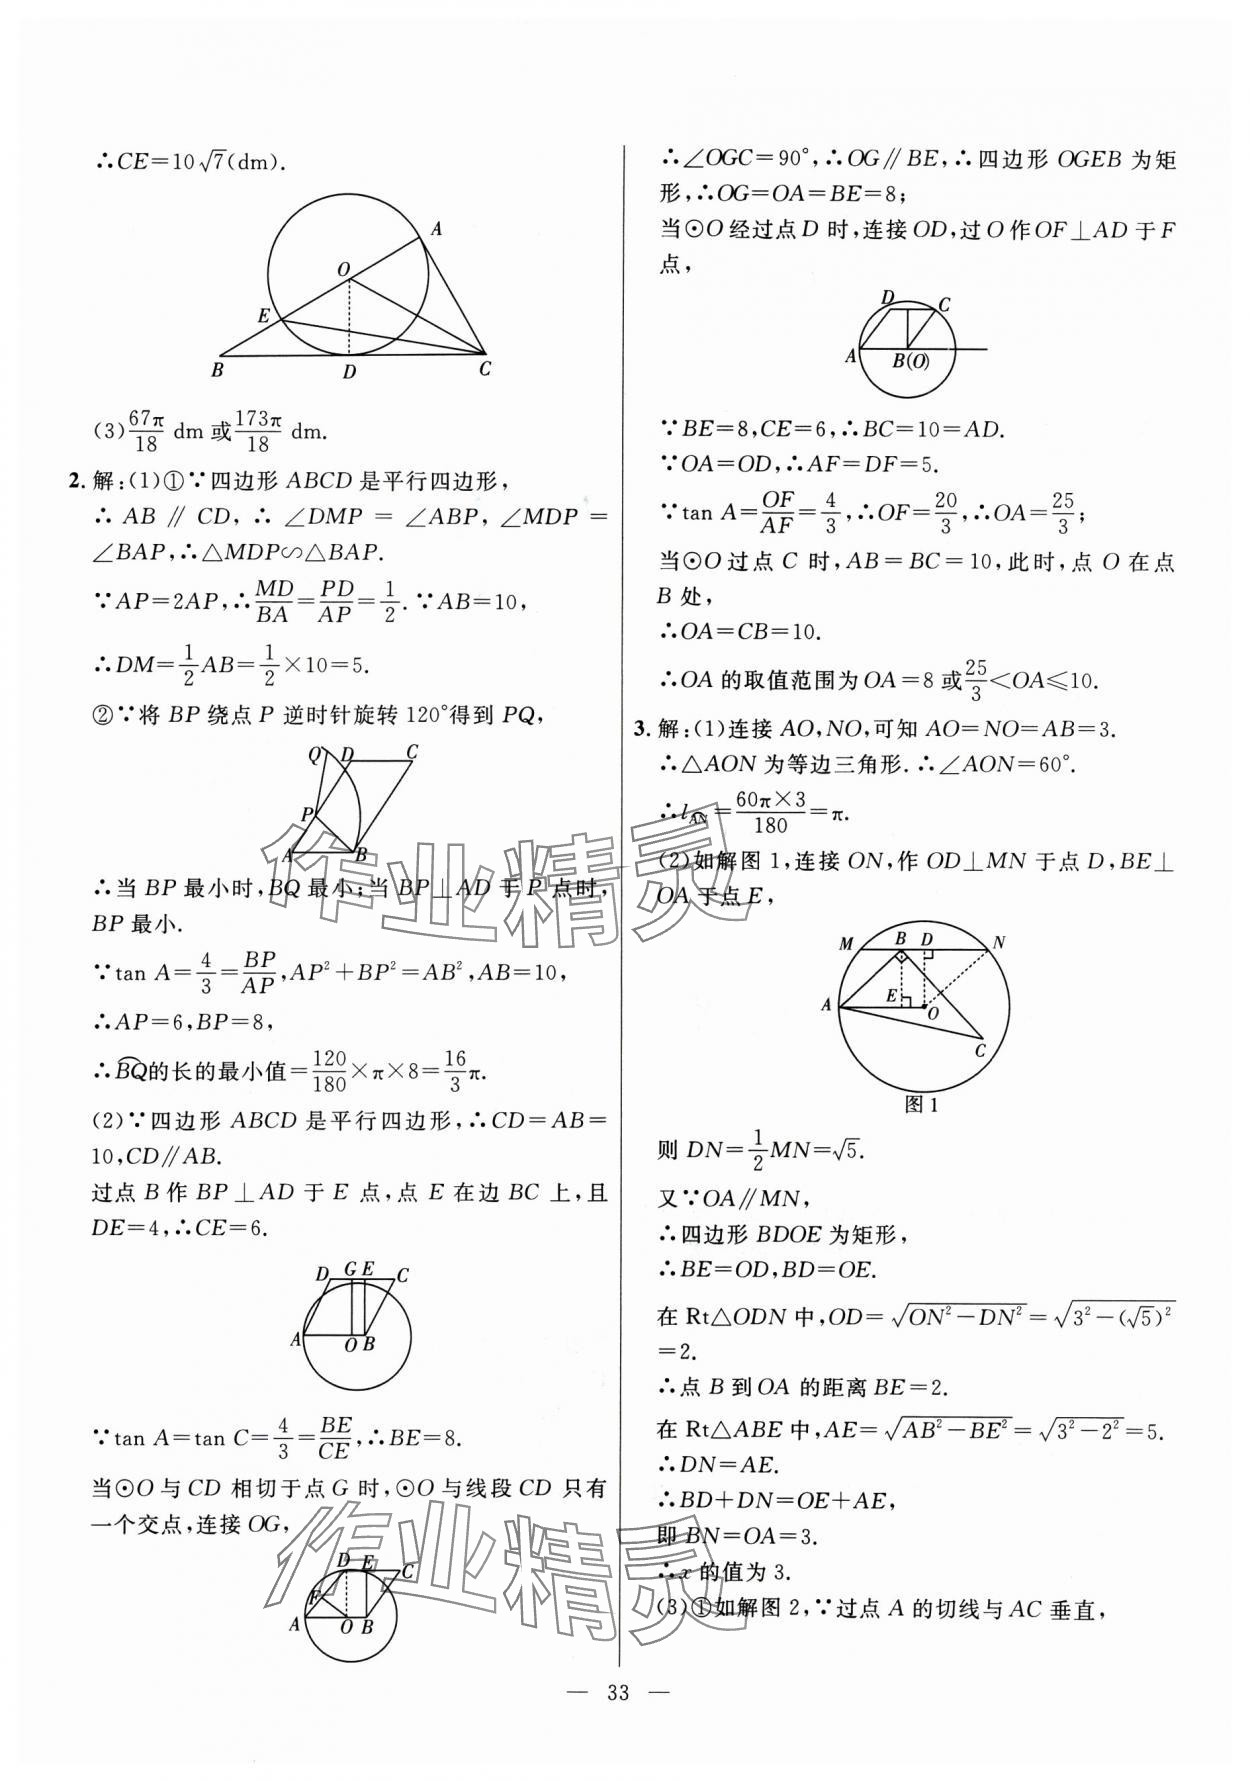 ∴CE=10√7(dm).
A
O
E
B
D
C
(3)67π/18 dm或173π/18 dm.
2. 解:(1)①∵四边形 ABCD 是平行四边形,
∴ AB // CD, ∴ ∠DMP = ∠ABP, ∠MDP =
∠BAP,∴△MDP∽△BAP.
∵AP=2AP,∴MD/BA=PD/AP=1/2.∵AB=10,
∴DM=1/2AB=1/2×10=5.
②∵将 BP 绕点 P 逆时针旋转 120°得到 PQ,
Q D C
P
A B
∴当 BP 最小时,BQ 最小;当 BP⊥AD 于 P 点时,
BP 最小.
∵tan A=4/3=BP/AP,AP²+BP²=AB²,AB=10,
∴AP=6,BP=8,
∴⌒BQ的长的最小值=120/180×π×8=16/3π.
(2)∵四边形 ABCD 是平行四边形,∴CD=AB=
10,CD//AB.
过点 B 作 BP⊥AD 于 E 点,点 E 在边 BC 上,且
DE=4,∴CE=6.
D G E C
A O B
∵tan A=tan C=4/3=BE/CE,∴BE=8.
当⊙O 与 CD 相切于点 G 时,⊙O 与线段 CD 只有
一个交点,连接 OG,
D E C
F
A O B
∴∠OGC=90°,∴OG//BE,∴四边形 OGEB 为矩
形,∴OG=OA=BE=8;
当⊙O 经过点 D 时,连接 OD,过 O 作 OF⊥AD 于 F
点,
D C
A B(O)
∵BE=8,CE=6,∴BC=10=AD.
∵OA=OD,∴AF=DF=5.
∵tan A=OF/AF=4/3,∴OF=20/3,∴OA=25/3;
当⊙O 过点 C 时,AB=BC=10,此时,点 O 在点
B 处,
∴OA=CB=10.
∴OA 的取值范围为 OA=8 或25/3<OA≤10.
3. 解:(1)连接 AO,NO,可知 AO=NO=AB=3.
∴△AON 为等边三角形.∴∠AON=60°.
∴l⌒AN=60π×3/180=π.
(2)如解图 1,连接 ON,作 OD⊥MN 于点 D,BE⊥
OA 于点 E,
M B D N
A E O
C
图 1
则 DN=1/2MN=√5.
又∵OA//MN,
∴四边形 BDOE 为矩形,
∴BE=OD,BD=OE.
在 Rt△ODN 中,OD=√(ON²-DN²)=√(3²-(√5)²)
=2.
∴点 B 到 OA 的距离 BE=2.
在 Rt△ABE 中,AE=√(AB²-BE²)=√(3²-2²)=5.
∴DN=AE.
∴BD+DN=OE+AE,
即 BN=OA=3.
∴x 的值为 3.
(3)①如解图 2,∵过点 A 的切线与 AC 垂直,
作业精灵
作业精灵
— 33 —